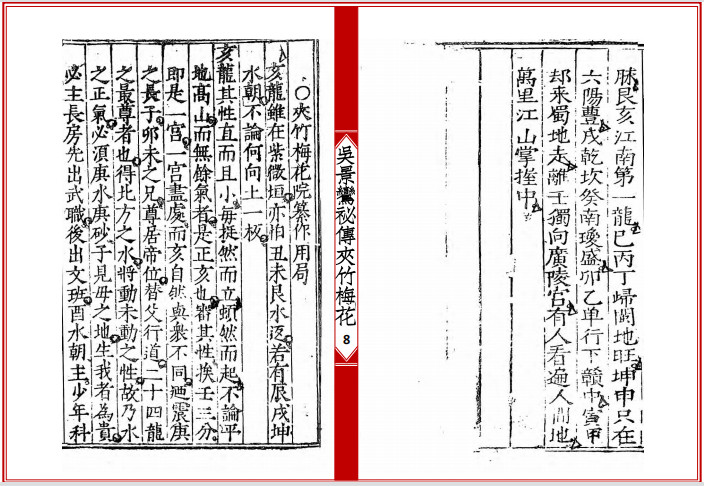 脉艮亥江南第一龍巳丙丁歸閩地旺坤申只在
六陽豐戌乾坎癸南瓊盛卯乙单行下贛中寅甲
却来蜀地走離壬獨向廣陵宮有人看遍人間地
萬里江山掌握中
吳景鸞祕傳夾竹梅花
8
○夾竹梅花院纂作用局
亥龍雖在紫微垣亦怕丑未艮水返若有辰戌坤
水朝不論何向上一板
亥龍其性直而且小毋挺然而立頓然而起不論平
地高山而無餘氣者是正亥也審其性候壬三分
即是一宮一宮盡處而亥自然與衆不同廼震庚
之長子卯未之兄尊居帝位替父行道二十四龍
之最尊者也得北方之水將動未動之性故乃水
之正氣必須庚水庚砂子見母之地生我者為貴
必主長房先出武職後出文班酉水朝主少年科